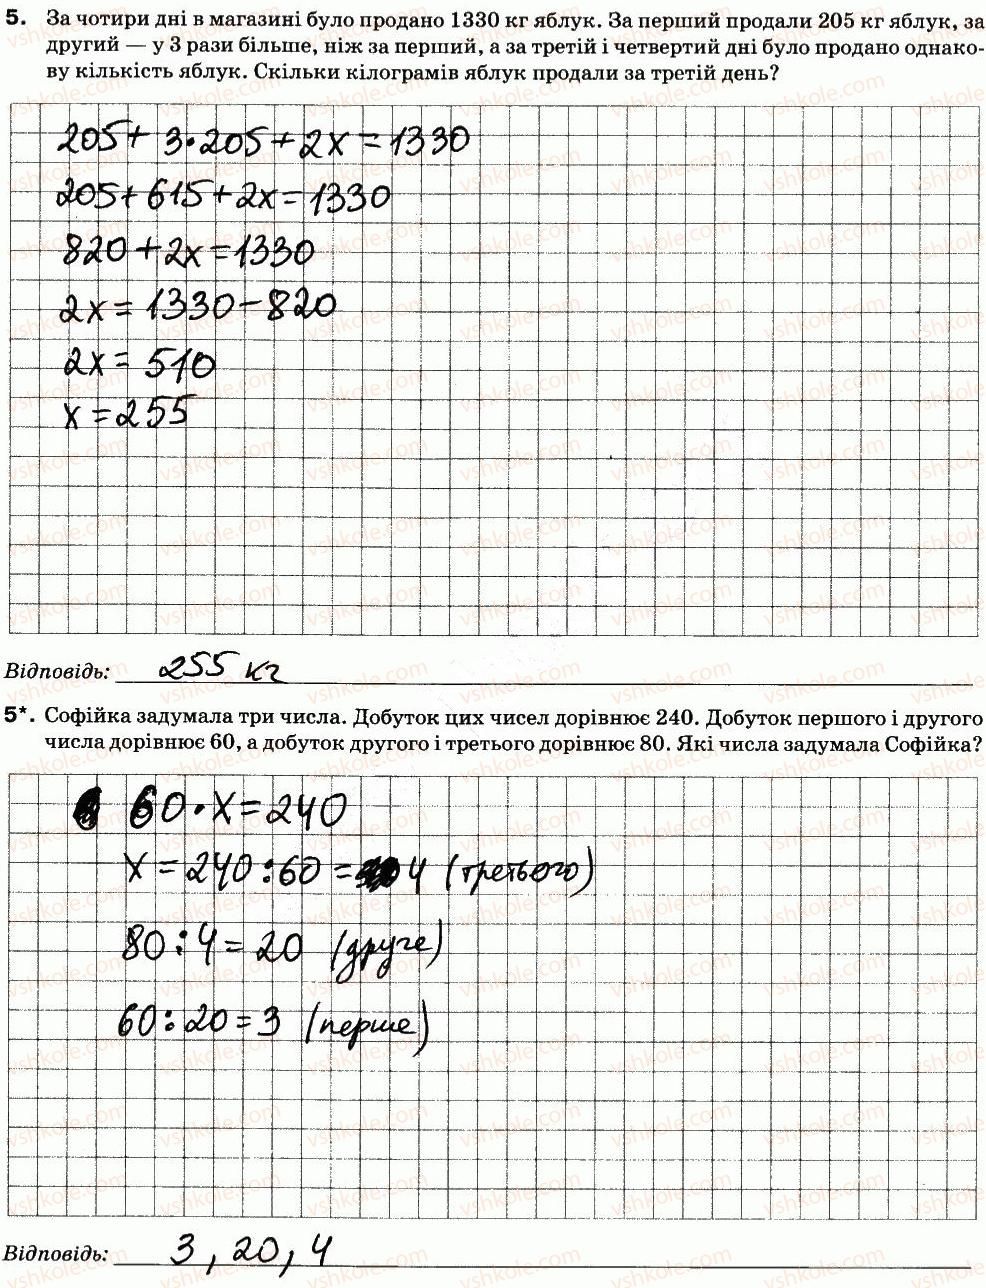 5. За чотири дні в магазині було продано 1330 кг яблук. За перший продали 205 кг яблук, за
другий — у 3 рази більше, ніж за перший, а за третій і четвертий дні було продано однако-
ву кількість яблук. Скільки кілограмів яблук продали за третій день?
205 + 3·205 + 2x = 1330
205 + 615 + 2x = 1330
820 + 2x = 1330
2x = 1330 - 820
2x = 510
x = 255
Відповідь: 255 кг
5*. Софійка задумала три числа. Добуток цих чисел дорівнює 240. Добуток першого і другого
числа дорівнює 60, а добуток другого і третього дорівнює 80. Які числа задумала Софійка?
60 · x = 240
x = 240 : 60 = 4 (третього)
80 : 4 = 20 (друге)
60 : 20 = 3 (перше)
Відповідь: 3, 20, 4
vshkole.com